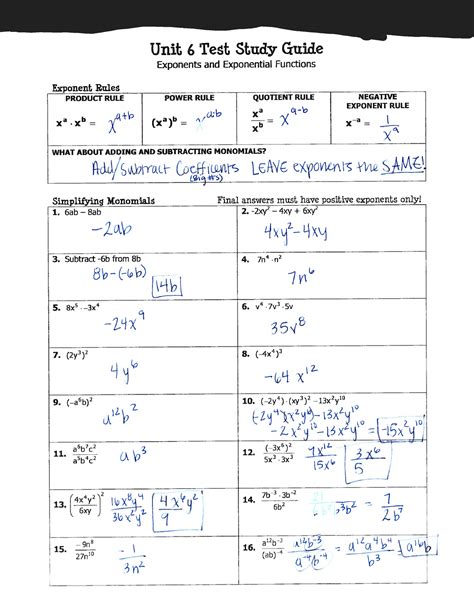 Unit 6 Test Study Guide
Exponents and Exponential Functions
Exponent Rules
PRODUCT RULE
POWER RULE
QUOTIENT RULE
NEGATIVE EXPONENT RULE
xᵃ · xᵇ = xᵃ⁺ᵇ
(xᵃ)ᵇ = xᵃᵇ
xᵃ/xᵇ = xᵃ⁻ᵇ
x⁻ᵃ = 1/xᵃ
WHAT ABOUT ADDING AND SUBTRACTING MONOMIALS?
Add/Subtract Coefficients LEAVE exponents the SAME!
(Big #s)
Simplifying Monomials Final answers must have positive exponents only!
1. 6ab – 8ab
-2ab
2. -2xy² – 4xy + 6xy²
4xy² - 4xy
3. Subtract -6b from 8b
8b - (-6b)
14b
4. 7n⁴ · n²
7n⁶
5. 8x⁵ · -3x⁴
-24x⁹
6. v⁴ · 7v³ · 5v
35v⁸
7. (2y³)²
4y⁶
8. (-4x⁴)³
-64x¹²
9. (-a⁶b)²
a¹²b²
10. (-2y⁴) · (xy³)² – 13x²y¹⁰
-2x²y¹⁰ - 13x²y¹⁰ = -15x²y¹⁰
11. ab³
12. (-3x⁶)²/5x³ · 3x³
15x⁶
3x⁶/5
13. (4x⁴y²/6xy)²
16x⁸y⁴/36x²y²
4x⁶y²/9
14. 7b⁻³ · 3b⁻²/6b²
= 7/2b⁷
15. -9n⁸/27n¹⁰
-1/3n²
16. a¹²b⁻³/(ab)⁻⁴
a¹²b⁻³/a⁻⁴b⁻⁴
= a¹²a⁴b⁴/b³
a¹⁶b